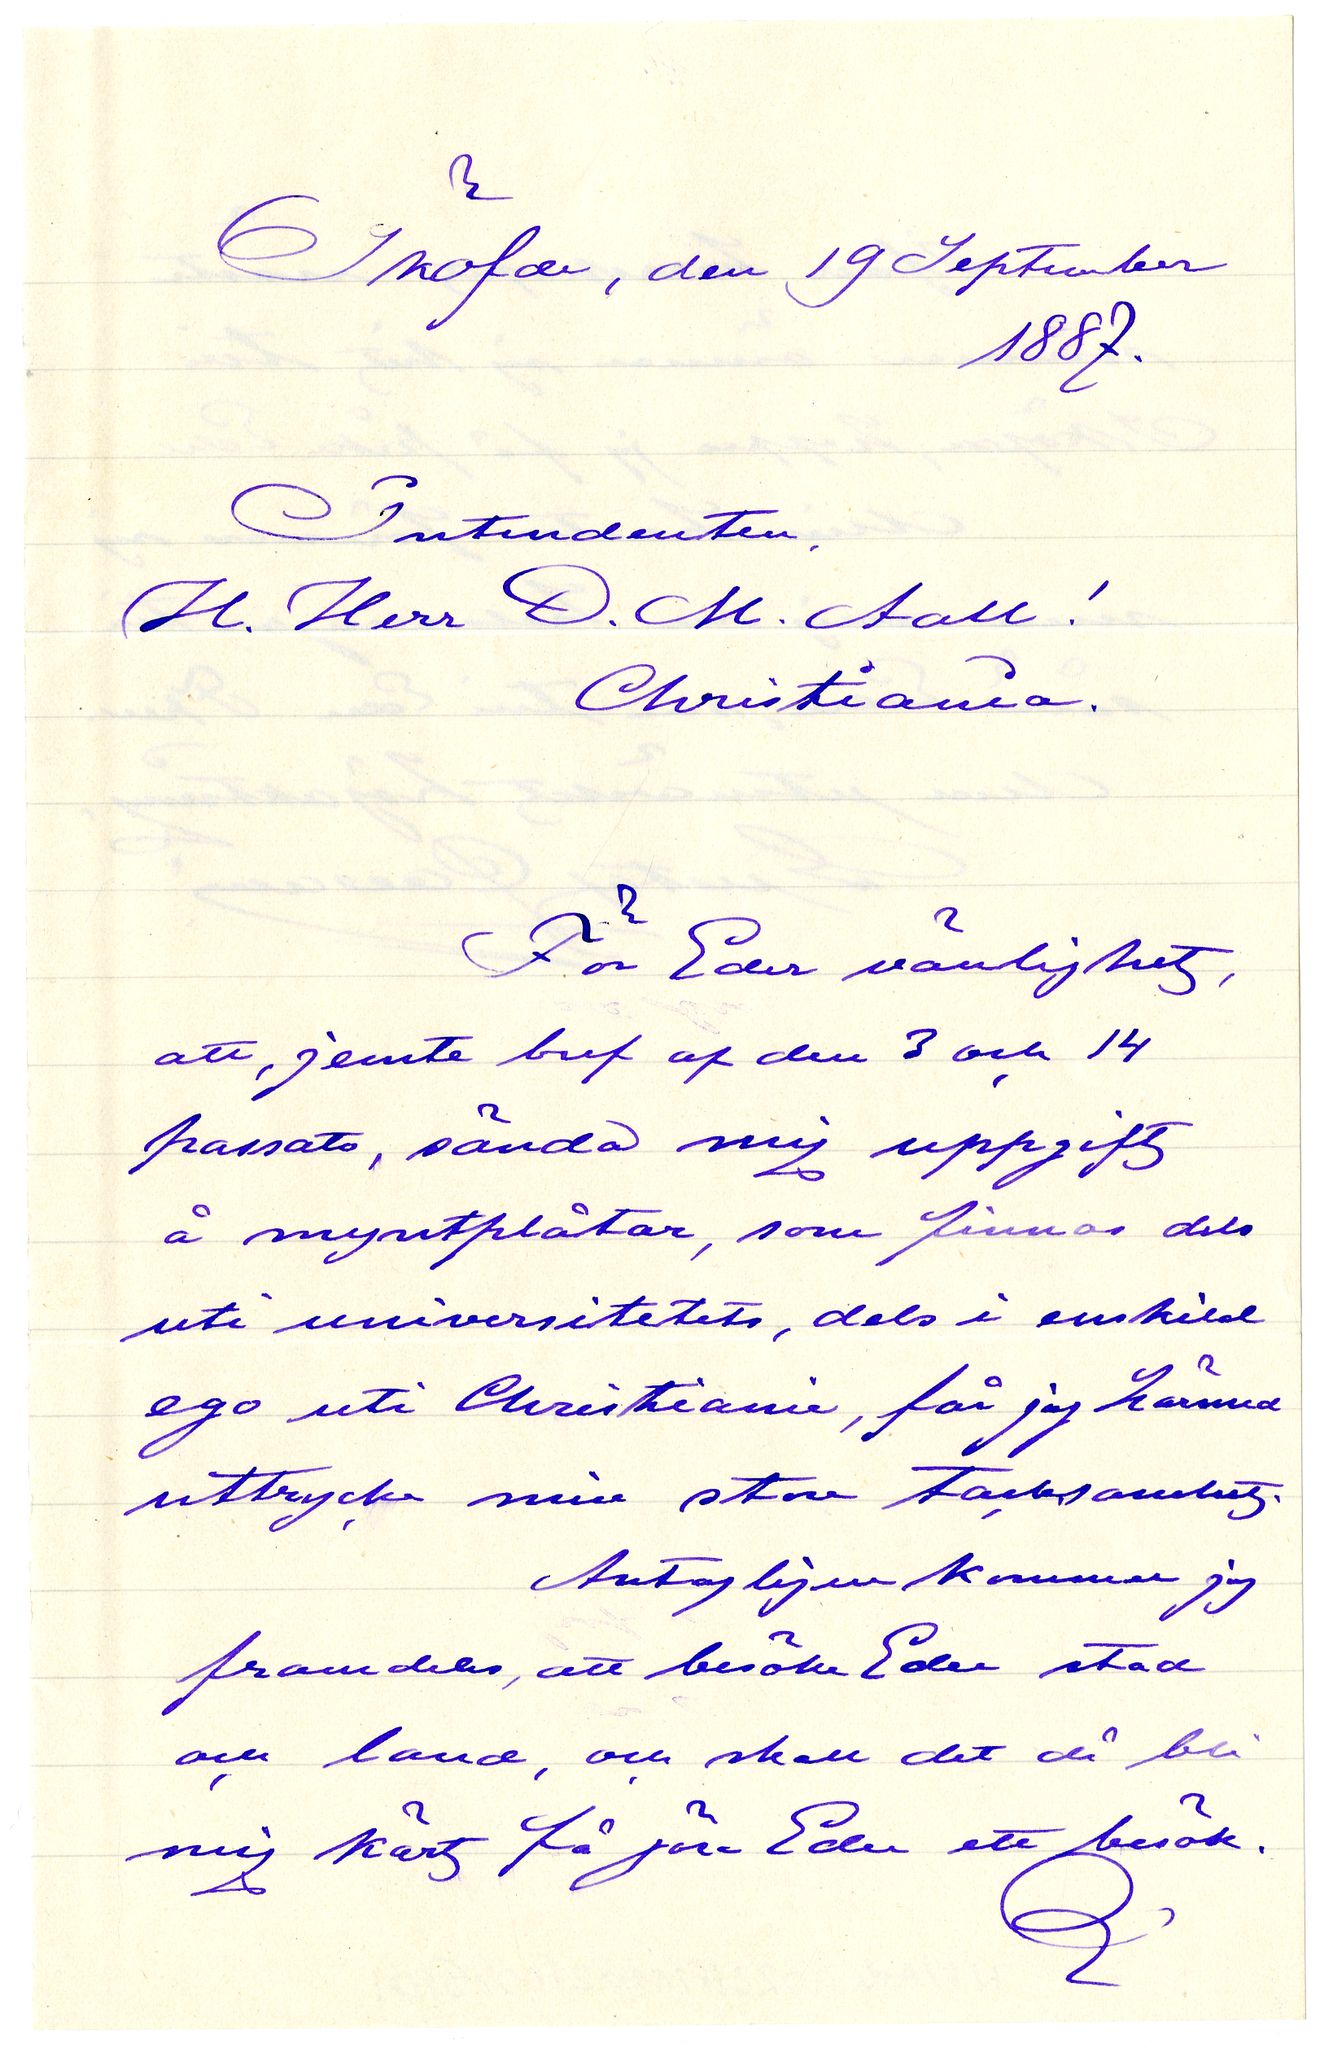 Sköfde, den 19 September
1887.
Intendenten,
H. Herr D. M. Aall!
Christiania.
För Eder vänlighet,
att, jemte bref af den 3 och 14
passato, sända mig uppgift
å myntplåtar, som finnas dels
uti universitetets, dels i enskild
ego uti Christiania, får jag härmed
uttrycka min stora tacksamhet.
Antagligen kommer jag
framdeles, att besöka Eder stad
och land, och skall det då bli
mig kärt få göra Eder ett besök.